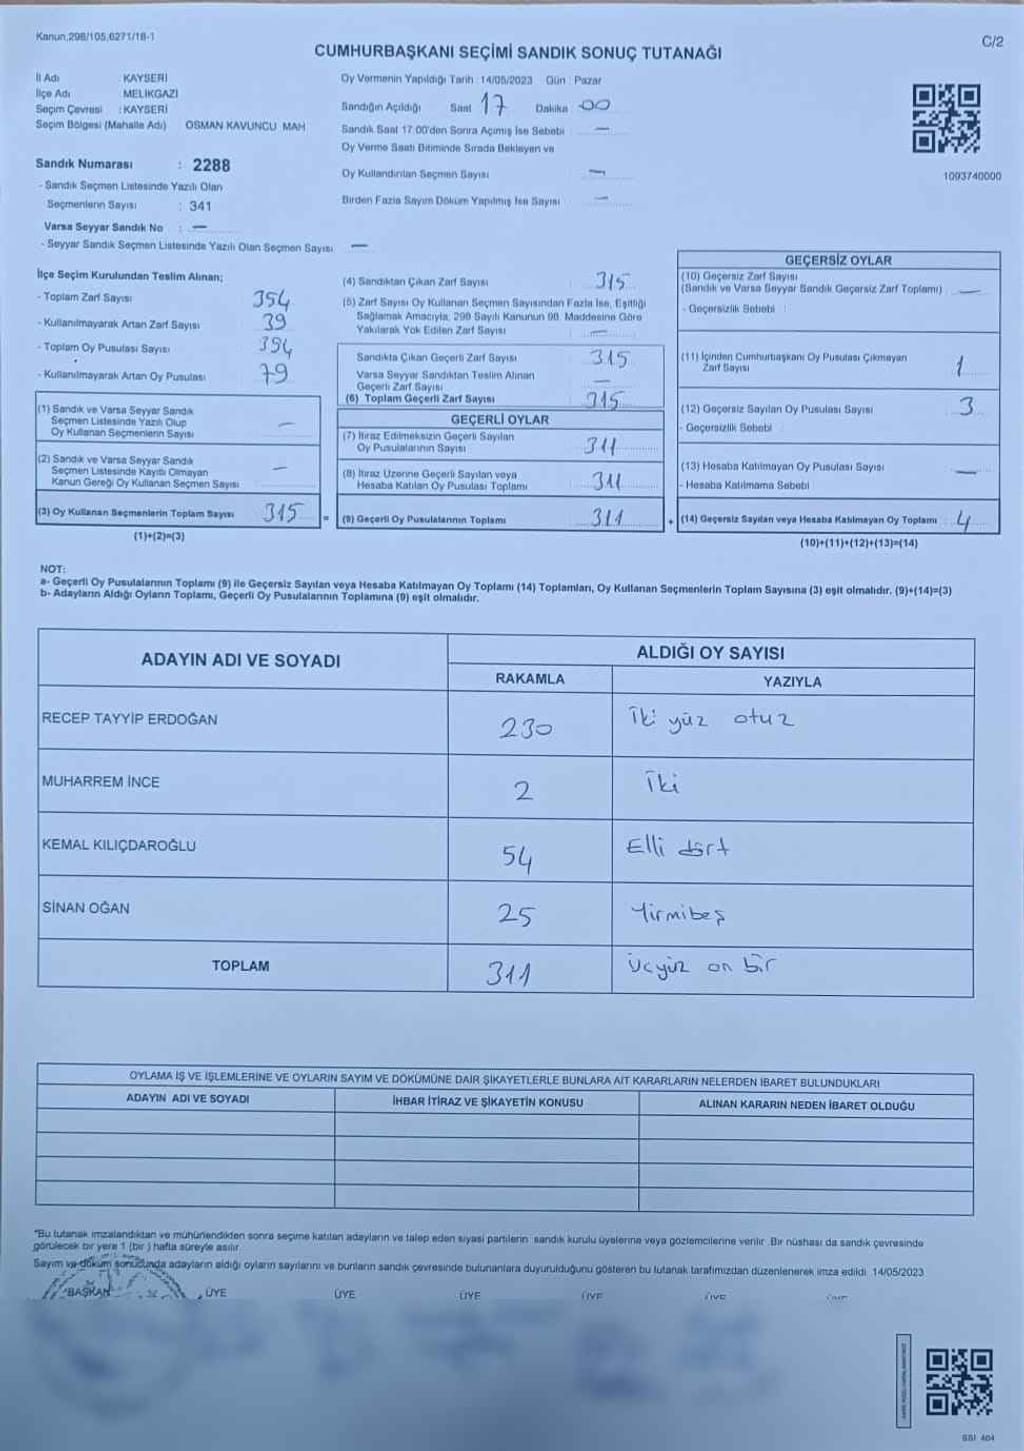 Kanun,298/105,6271/18-1
C/2
CUMHURBAŞKANI SEÇİMİ SANDIK SONUÇ TUTANAĞI
İl Adı : KAYSERİ
İlçe Adı : MELİKGAZİ
Seçim Çevresi : KAYSERİ
Seçim Bölgesi (Mahalle Adı) OSMAN KAVUNCU MAH
Oy Vermenin Yapıldığı Tarih : 14/05/2023 Gün : Pazar
Sandığın Açıldığı Saat 17 Dakika 00
Sandık Saat 17:00'den Sonra Açımış İse Sebebi —
Oy Verme Saati Bitiminde Sırada Bekleyen ve
Oy Kullandırılan Seçmen Sayısı —
Birden Fazla Sayım Döküm Yapılmış İse Sayısı —
1093740000
Sandık Numarası : 2288
- Sandık Seçmen Listesinde Yazılı Olan
Seçmenlerin Sayısı : 341
Varsa Seyyar Sandık No : —
- Seyyar Sandık Seçmen Listesinde Yazılı Olan Seçmen Sayısı —
İlçe Seçim Kurulundan Teslim Alınan;
- Toplam Zarf Sayısı 354
- Kullanılmayarak Artan Zarf Sayısı 39
- Toplam Oy Pusulası Sayısı 394
- Kullanılmayarak Artan Oy Pusulası 79
(1) Sandık ve Varsa Seyyar Sandık
Seçmen Listesinde Yazılı Olup
Oy Kullanan Seçmenlerin Sayısı —
(2) Sandık ve Varsa Seyyar Sandık
Seçmen Listesinde Kayıtlı Olmayan
Kanun Gereği Oy Kullanan Seçmen Sayısı —
(3) Oy Kullanan Seçmenlerin Toplam Sayısı 315
(1)+(2)=(3)
(4) Sandıktan Çıkan Zarf Sayısı 315
(5) Zarf Sayısı Oy Kullanan Seçmen Sayısından Fazla İse, Eşitliği
Sağlamak Amacıyla, 298 Sayılı Kanunun 98. Maddesine Göre
Yakılarak Yok Edilen Zarf Sayısı —
Sandıkta Çıkan Geçerli Zarf Sayısı 315
Varsa Seyyar Sandıktan Teslim Alınan
Geçerli Zarf Sayısı —
(6) Toplam Geçerli Zarf Sayısı 315
GEÇERLİ OYLAR
(7) İtiraz Edilmeksizin Geçerli Sayılan
Oy Pusulalarının Sayısı 311
(8) İtiraz Üzerine Geçerli Sayılan veya
Hesaba Katılan Oy Pusulası Toplamı 311
= (9) Geçerli Oy Pusulalarının Toplamı 311
GEÇERSİZ OYLAR
(10) Geçersiz Zarf Sayısı
(Sandık ve Varsa Seyyar Sandık Geçersiz Zarf Toplamı) —
- Geçersizlik Sebebi :
(11) İçinden Cumhurbaşkanı Oy Pusulası Çıkmayan
Zarf Sayısı 1
(12) Geçersiz Sayılan Oy Pusulası Sayısı 3
- Geçersizlik Sebebi :
(13) Hesaba Katılmayan Oy Pusulası Sayısı —
- Hesaba Katılmama Sebebi
+ (14) Geçersiz Sayılan veya Hesaba Katılmayan Oy Toplamı 4
(10)+(11)+(12)+(13)=(14)
NOT:
a- Geçerli Oy Pusulalarının Toplamı (9) ile Geçersiz Sayılan veya Hesaba Katılmayan Oy Toplamı (14) Toplamları, Oy Kullanan Seçmenlerin Toplam Sayısına (3) eşit olmalıdır. (9)+(14)=(3)
b- Adayların Aldığı Oyların Toplamı, Geçerli Oy Pusulalarının Toplamına (9) eşit olmalıdır.
ADAYIN ADI VE SOYADI
ALDIĞI OY SAYISI
RAKAMLA YAZIYLA
RECEP TAYYİP ERDOĞAN 230 İki yüz otuz
MUHARREM İNCE 2 İki
KEMAL KILIÇDAROĞLU 54 Elli dört
SİNAN OĞAN 25 Yirmibeş
TOPLAM 311 Üçyüz on bir
OYLAMA İŞ VE İŞLEMLERİNE VE OYLARIN SAYIM VE DÖKÜMÜNE DAİR ŞİKAYETLERLE BUNLARA AİT KARARLARIN NELERDEN İBARET BULUNDUKLARI
ADAYIN ADI VE SOYADI İHBAR İTİRAZ VE ŞİKAYETİN KONUSU ALINAN KARARIN NEDEN İBARET OLDUĞU
*Bu tutanak imzalandıktan ve mühürlendikten sonra seçime katılan adayların ve talep eden siyasi partilerin sandık kurulu üyelerine veya gözlemcilerine verilir. Bir nüshası da sandık çevresinde
görülecek bir yere 1 (bir) hafta süreyle asılır.
Sayım ve döküm sonucunda adayların aldığı oyların sayılarını ve bunların sandık çevresinde bulunanlara duyurulduğunu gösteren bu tutanak tarafımızdan düzenlenerek imza edildi. 14/05/2023
BAŞKAN ÜYE ÜYE ÜYE ÜYE ÜYE
SSI 404